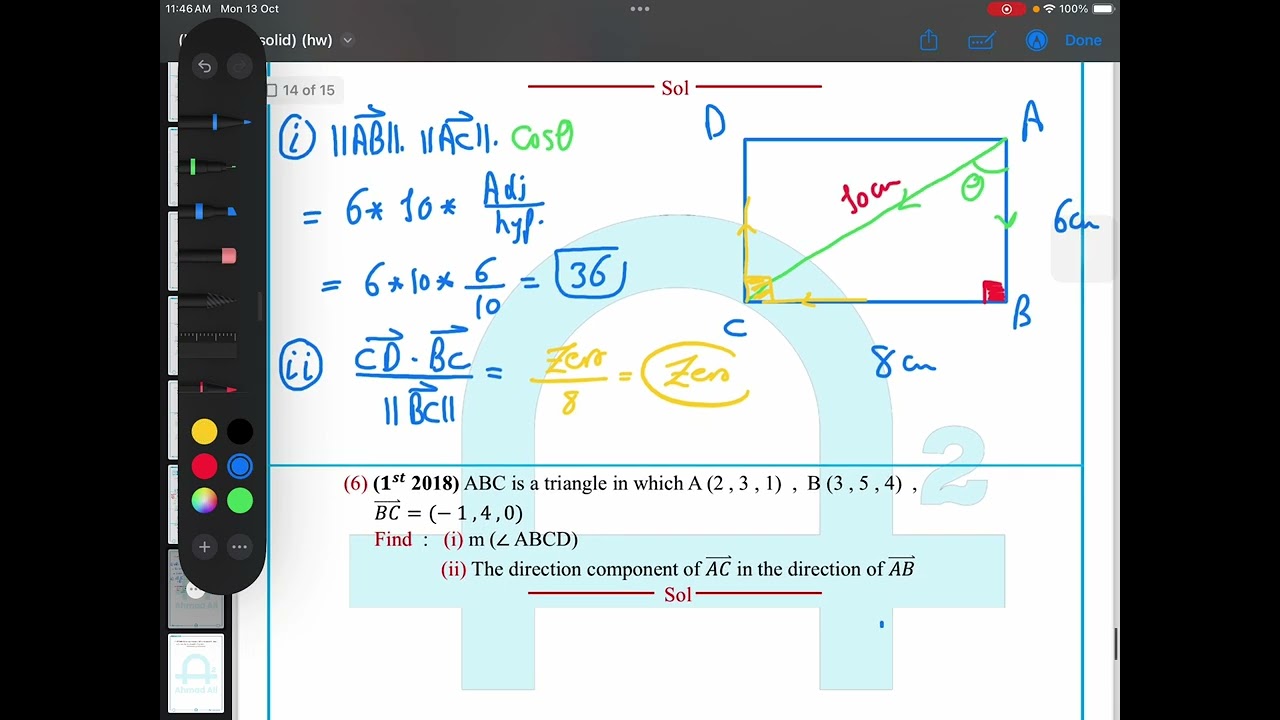 11:46 AM Mon 13 Oct
100%
solid) (hw)
Done
14 of 15
Sol
(i) ||AB||. ||AC||. Cosθ
= 6 * 10 * Adj/hyp.
= 6 * 10 * 6/10 = 36
(ii) CD . BC / ||BC|| = Zero/8 = Zero
D
A
10cm
θ
6cm
C
B
8cm
2
(6) (1st 2018) ABC is a triangle in which A (2 , 3 , 1) , B (3 , 5 , 4) ,
BC = (− 1 , 4 , 0)
Find : (i) m (∠ ABCD)
(ii) The direction component of AC in the direction of AB
Sol
Ahmad Ali
2
Ahmad Ali